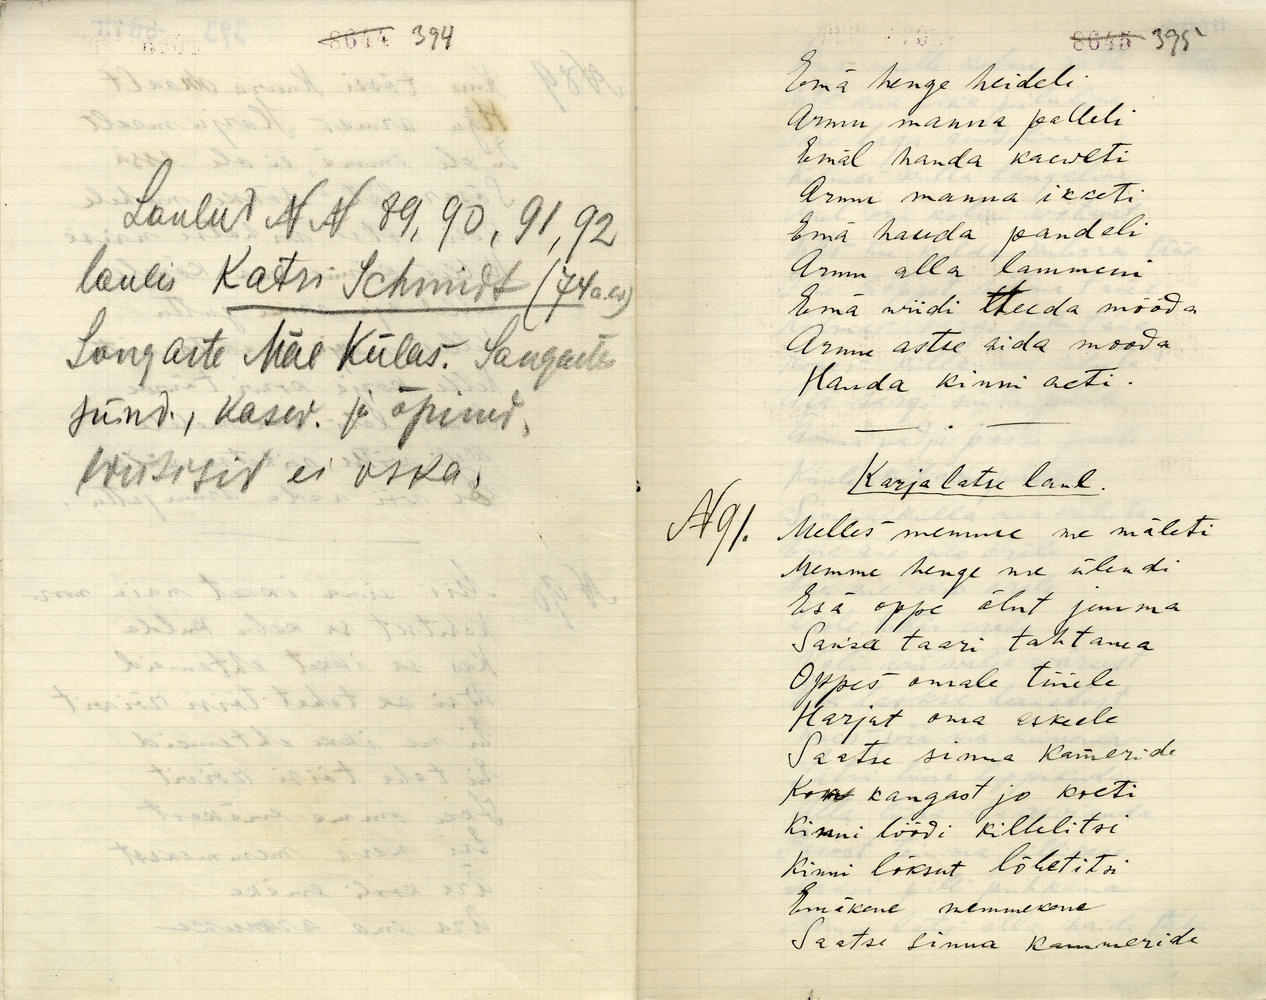 8644 394
Laulud NN 89, 90, 91, 92
laulis Katri Schmidt (74 a.)
Sangaste Mäe Külas. Sangaste
sünd., kasv. ja õpinud.
ei oska.
8645 395
Emä henge heideli
Armu manna palleli
Emäl handa kaeveti
Armu manna ikketi
Emä hauda pandeli
Armu alla lammeni
Emä viidi teeda mööda
Armu astse aida mööda
Handa kinni aeti.
Karjalatse laul.
N 91. Melles memme me mäleti
Memme henge me ülendi
Esä oppe õlut jooma
Saisa taari tahtama
Oppes omale
Harjut oma eskele
Saatse sinna kameride
kangast jo koeti
Kinni löödi killelitsi
Kinni löksut lõhetitsi
Emäkene memmekene
Saatse sinna kammeride